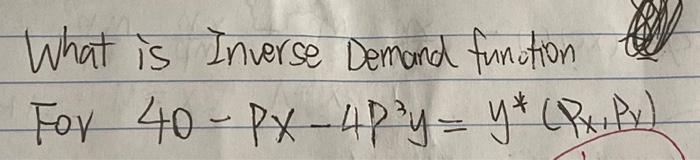 What is Inverse Demand function
For 40 - Px - 4P³y = y* (Px, Py)